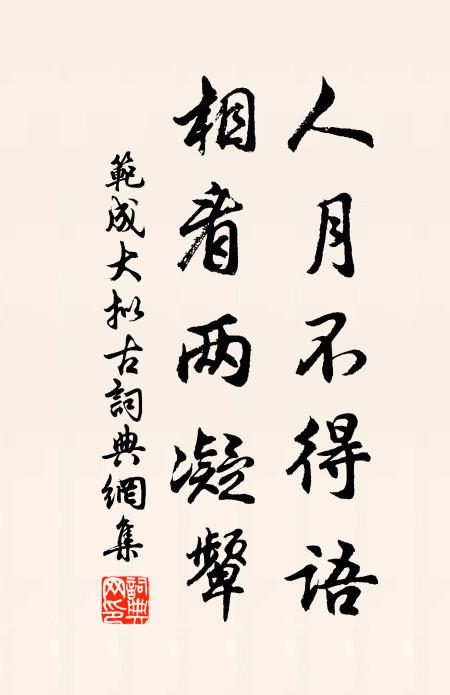 人月不得语
相看两凝颦
範成大拟古詞典網集
詞典網印